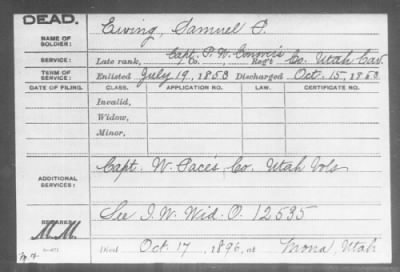 DEAD.
NAME OF SOLDIER: Ewing, Samuel P.
SERVICE: Late rank, Capt. P. W. Conover's Co. Reg't Co. Utah Cav.
TERM OF SERVICE: Enlisted July 19, 1853 Discharged Oct. 15, 1853
DATE OF FILING. CLASS. APPLICATION NO. LAW. CERTIFICATE NO.
Invalid,
Widow,
Minor,
ADDITIONAL SERVICES: Capt. W. Pace's Co. Utah Vols
REMARKS: See I. W. Wid. O. 12535
Died Oct. 17, 1896, at Mona, Utah